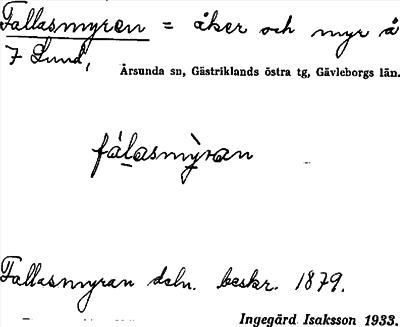 Fallasmyren = åker och myr å
7 Sund,
Årsunda sn, Gästriklands östra tg, Gävleborgs län.
fálasmỳran
Fallasmyran dsln. beskr. 1879.
Ingegärd Isaksson 1933.